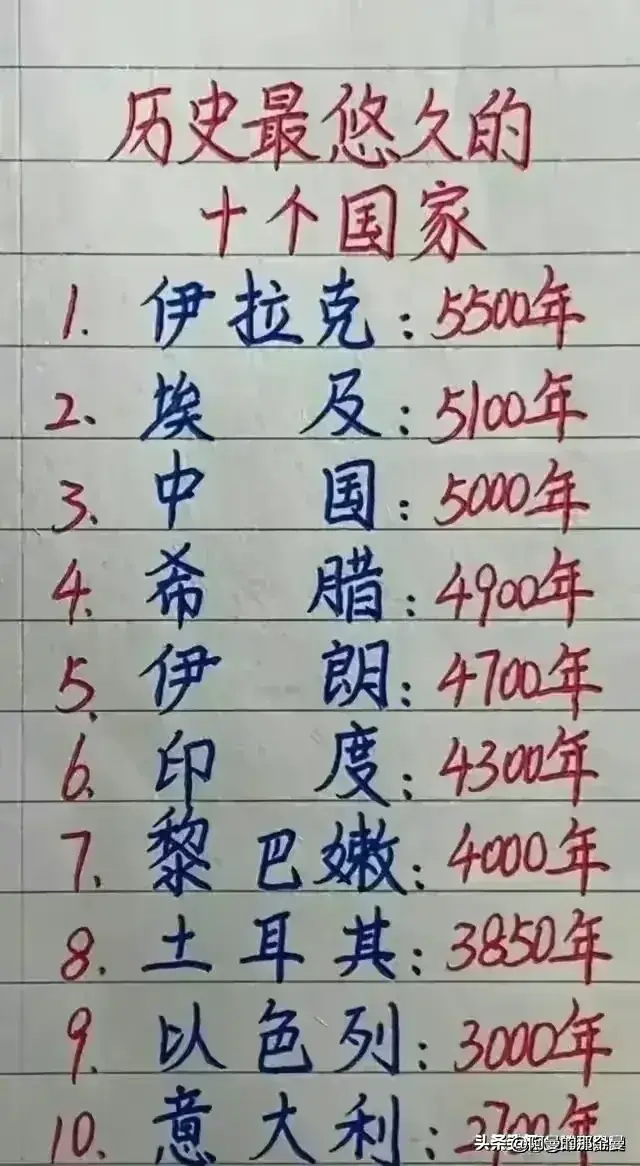 历史最悠久的
十个国家
1. 伊拉克:5500年
2. 埃及:5100年
3. 中国:5000年
4. 希腊:4900年
5. 伊朗:4700年
6. 印度:4300年
7. 黎巴嫩:4000年
8. 土耳其:3850年
9. 以色列:3000年
10. 意大利:2700年
头条